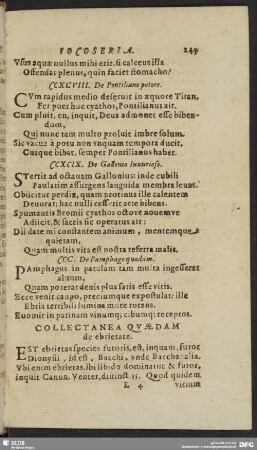 IOCOSERIA. 245
Vsus aquæ nullus mihi erit. si calceus illa
Offendat plenus, quin faciet stomacho?
CCXCVIII. De Pontiliano potore.
CVm rapidus medio deseruit in æquore Titan,
Fer puer huc cyathos, Pontilianus ait.
Cum pluit, en, inquit, Deus admonet esse biben-
dum,
Qui nunc tam multo proluit imbre solum.
Sic vacuæ à potu non vnquam tempora ducit,
Cuique bibat, semper Pontilianus habet.
CCXCIX. De Gallonio luxurioso.
STertit ad octauam Gallonius: inde cubili
Paulatim assurgens languida membra leuat.
Obiicitur perdix, quam protinus ille calentem
Deuorat: hac nulli esserit arte bibens.
Spumantis Bromii cyathos octove nouemve
Adiicit, & factis sic operatus ait:
Dii date mi constantem animum, mentemque
quietam,
Quam multis vita est nostra referta malis.
CCC. De Pamphago quodam.
PAmphagus in patulam tam multa ingesseret
aluum,
Quam poterat denis plus satis esse viris.
Ecce venit caupo, preciumque expostulat: ille
Ebria terribili lumina more rotans.
Euomit in patinam vinumq; cibumq; receptos.
COLLECTANEA QVÆDAM
de ebrietate.
EST ebrietas species furoris, est, inquam, furor
Dionysii, id est, Bacchi, vnde Bacchanalia.
Vbi enim ebrietas, ibi libido dominatur & furor,
inquit Canon. Venter, distinct. 35. Quod quidem
L 4 vitium
SLUB
DFG